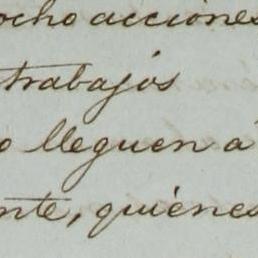 ocho acciones
trabajos
o lleguen á
nte, quiénes